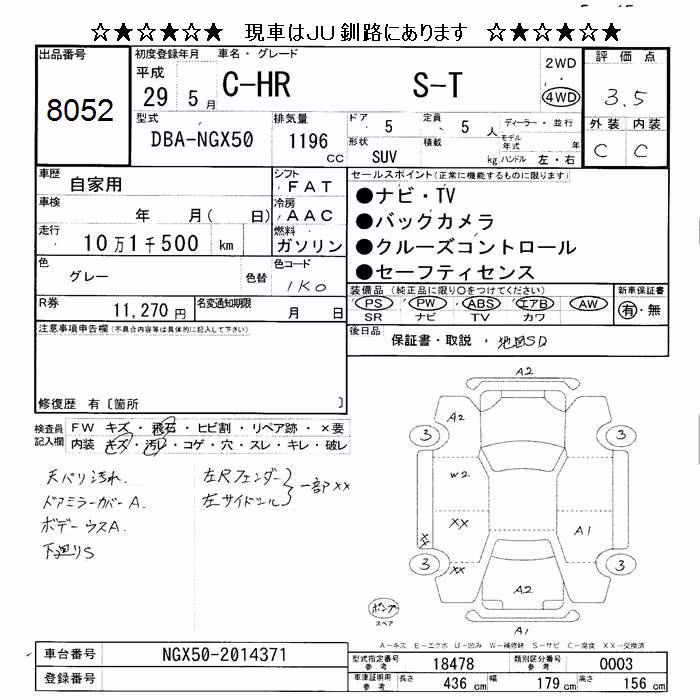 ☆★☆★☆★ 現車はJU釧路にあります ☆★☆★☆★
出品番号
8052
初度登録年月
平成
29 5 月
車名・グレード
C-HR S-T
2WD
・
4WD
評価点
3.5
外装 内装
C C
型式
DBA-NGX50
排気量
1196 cc
ドア
5
定員
5 人
ディーラー・並行
形状
SUV
積載
kg
モデル年式 年
ハンドル 左・右
車歴
自家用
シフト
FAT
車検
年 月( 日)
冷房
AAC
走行
10万1千500 km
燃料
ガソリン
色
グレー
色替
色コード
1K0
R券
11,270 円
名変通知期限
月 日
セールスポイント(正常に機能するものに限ります)
●ナビ・TV
●バックカメラ
●クルーズコントロール
●セーフティセンス
装備品 (純正品に限り○をつけてください)
PS ・ PW ・ ABS ・ エアB ・ AW
SR ナビ TV カワ
新車保証書
有・無
後日品
保証書・取説 ・地図SD
注意事項申告欄(不具合内容等は具体的に記入して下さい)
修復歴 有〔箇所 〕
検査員記入欄
FW キズ・飛石・ヒビ割・リペア跡・×要
内装 キズ・汚レ・コゲ・穴・スレ・キレ・破レ
天バリ汚れ
ドアミラーカバーA.
ボデーウスA.
下廻りS
左Rフェンダー
左サイドシル
一部××
A2
A2
3
3
W2
XX
A1
XX
3
3
XX
A2
A1
ポンプ
スペア
A-キズ E-エクボ U-凹み W-補修跡 S-サビ C-腐食 XX-交換済
車台番号
NGX50-2014371
登録番号
型式指定番号 参考
18478
類別区分番号 参考
0003
車庫証明用 参考
長さ 436 cm
幅 179 cm
高さ 156 cm